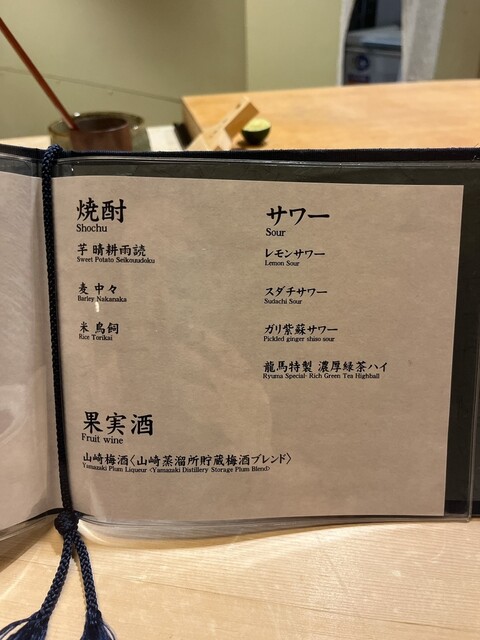 焼酎
Shochu
芋 晴耕雨読
Sweet Potato Seikouudoku
麦 中々
Barley Nakanaka
米 鳥飼
Rice Torikai
サワー
Sour
レモンサワー
Lemon Sour
スダチサワー
Sudachi Sour
ガリ紫蘇サワー
Pickled ginger shiso sour
龍馬特製 濃厚緑茶ハイ
Ryuma Special- Rich Green Tea Highball
果実酒
Fruit wine
山崎梅酒〈山崎蒸溜所貯蔵梅酒ブレンド〉
Yamazaki Plum Liqueur <Yamazaki Distillery Storage Plum Blend>